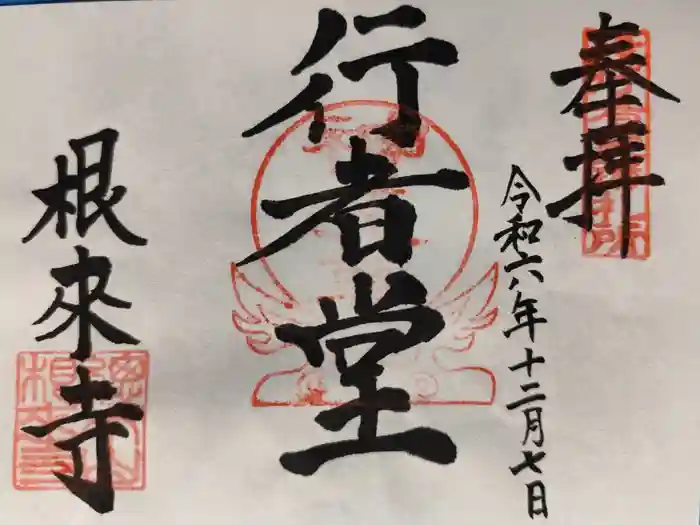 奉拝
令和六年十二月七日
行者堂
根来寺